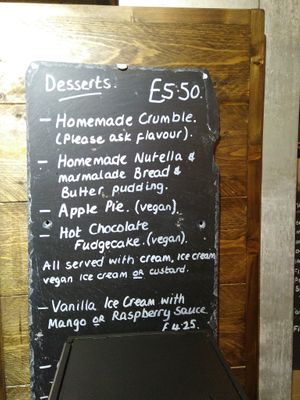 Desserts. £5.50.
– Homemade Crumble.
(Please ask flavour).
– Homemade Nutella &
marmalade Bread &
Butter pudding.
– Apple Pie. (vegan).
– Hot Chocolate
Fudgecake. (vegan).
All served with cream, ice cream,
vegan ice cream or custard.
– Vanilla Ice Cream with
Mango or Raspberry Sauce
£4.25.